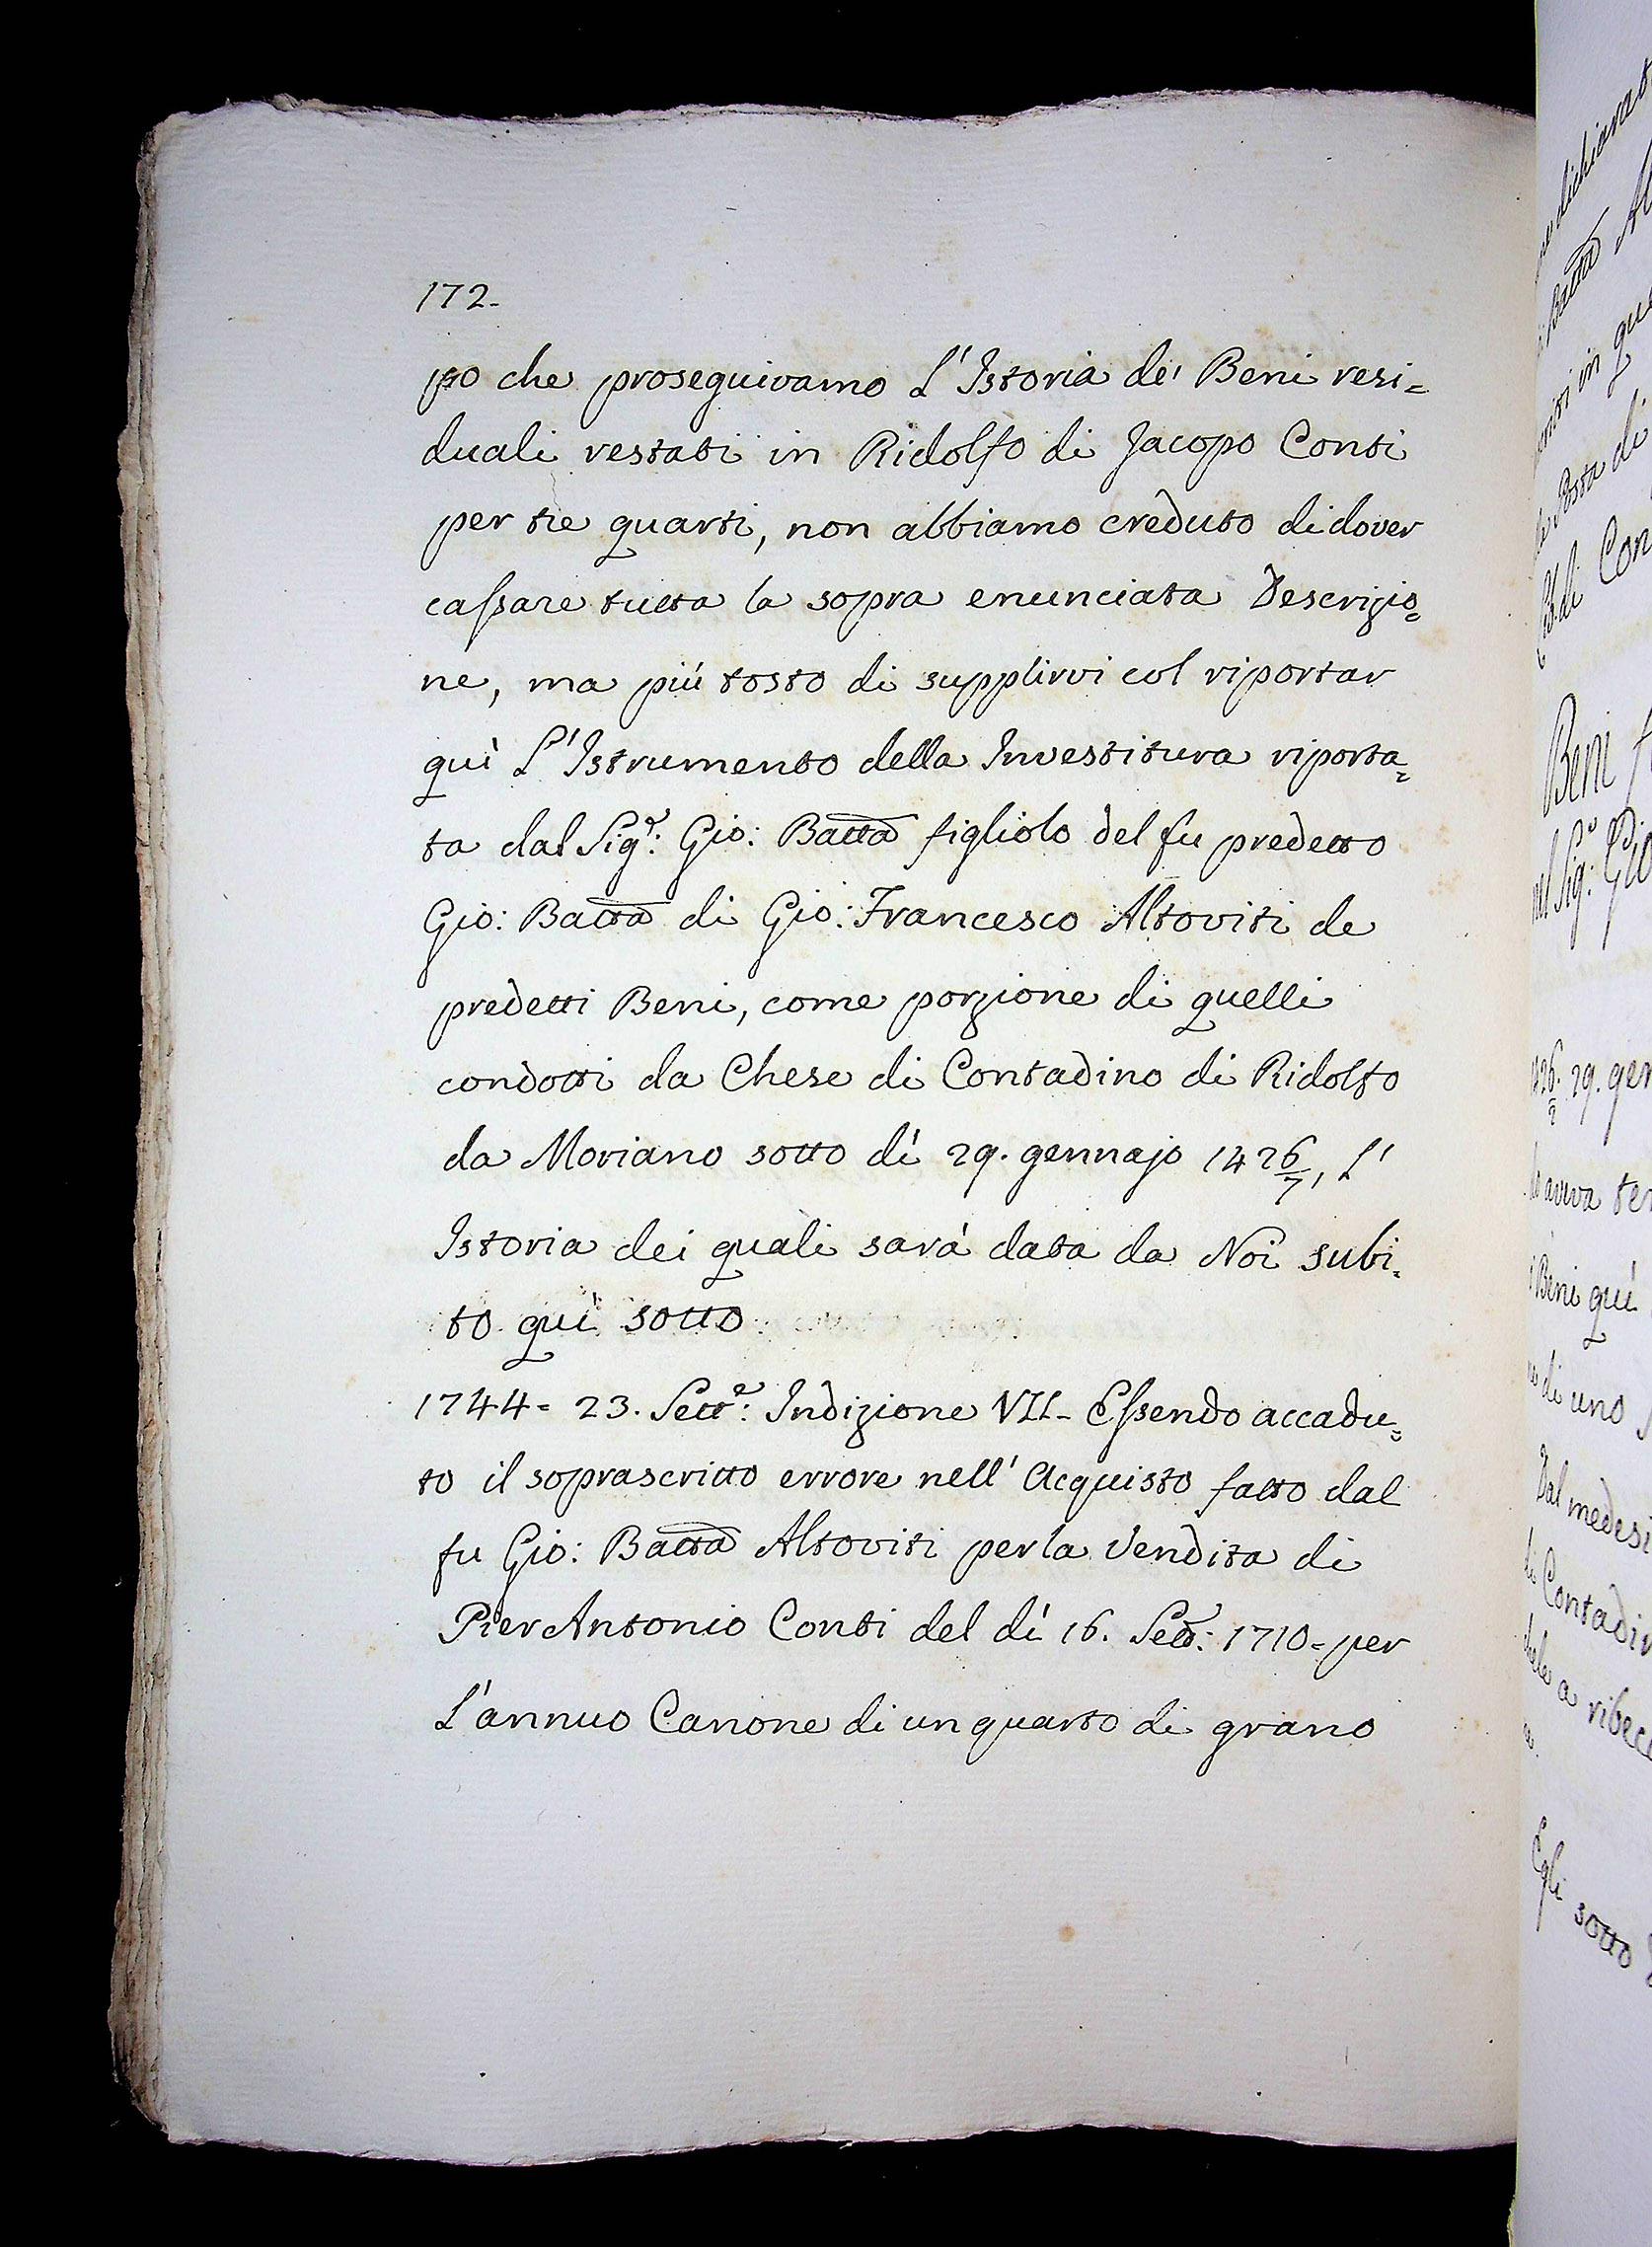 172.
po che proseguivamo L'Istoria de' Beni resi=
duali restati in Ridolfo di Jacopo Conti
per tre quarti, non abbiamo creduto di dover
cassare tutta la sopra enunciata Descrizio=
ne, ma più tosto di supplirvi col riportar
qui L'Istrumento della Investitura riporta=
ta dal Sig.e: Gio: Batta figliolo del fu predetto
Gio: Batta di Gio: Francesco Altoviti de
predetti Beni, come porzione di quelli
condotti da Chese di Contadino di Ridolfo
da Moriano sotto dì 29. gennajo 1426/7, L'
Istoria dei quali sarà data da Noi subi=
to quì sotto.
1744= 23. Sett.e: Indizione VII- Essendo accadu=
to il soprascritto errore nell' Acquisto fatto dal
fu Gio: Batta Altoviti per la Vendita di
Pier Antonio Conti del dì 16. Sett.e: 1710= per
L'annuo Canone di un quarto di grano
dichiarat
Batta Al
in que
Posta di
di Con
Beni f
Sig.e: Gio
29. gen
aveva ter
Beni quì
di uno
Dal medesi
Contadin
a ribec
Egli sotto